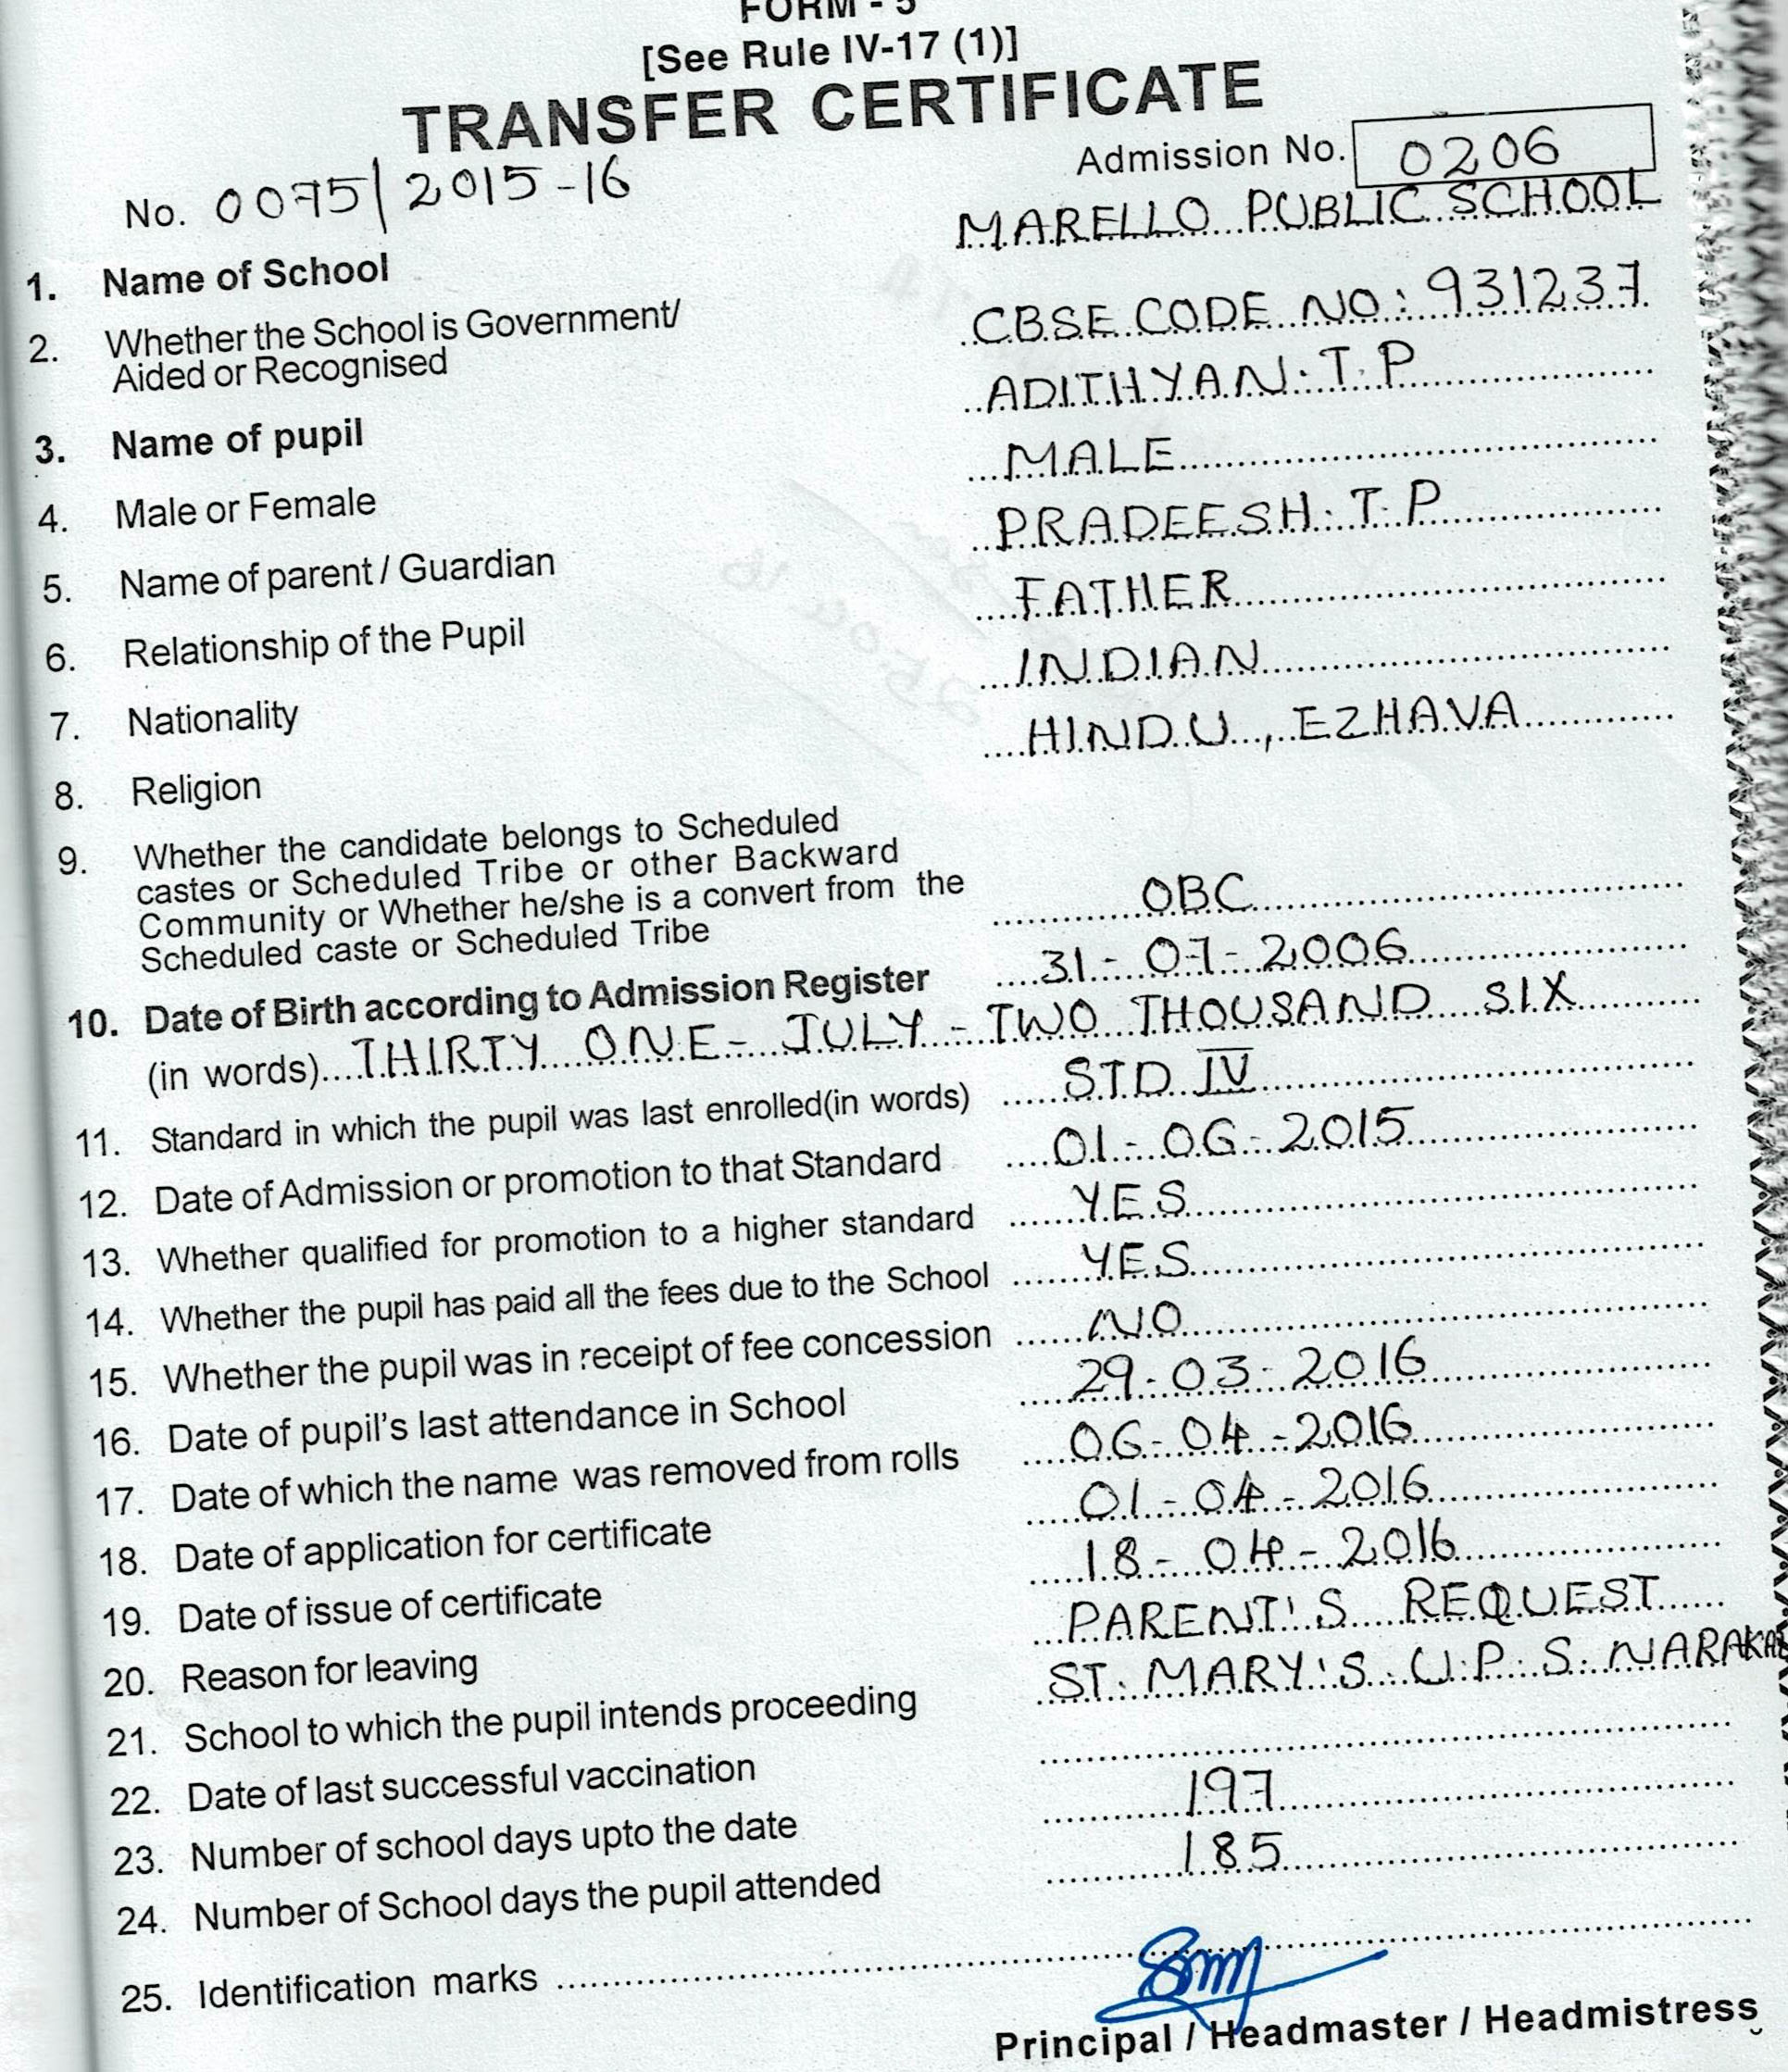 FORM - 5
[See Rule IV-17 (1)]
TRANSFER CERTIFICATE
Admission No. 0206
No. 0075/2015-16
1. Name of School MARELLO PUBLIC SCHOOL
2. Whether the School is Government/
Aided or Recognised CBSE CODE NO: 931237
3. Name of pupil ADITHYAN. T. P
4. Male or Female MALE
5. Name of parent / Guardian PRADEESH. T. P
6. Relationship of the Pupil FATHER
7. Nationality INDIAN
8. Religion HINDU, EZHAVA
9. Whether the candidate belongs to Scheduled
castes or Scheduled Tribe or other Backward
Community or Whether he/she is a convert from the
Scheduled caste or Scheduled Tribe OBC
10. Date of Birth according to Admission Register 31-07-2006
(in words) THIRTY ONE - JULY - TWO THOUSAND SIX
11. Standard in which the pupil was last enrolled(in words) STD IV
12. Date of Admission or promotion to that Standard 01-06-2015
13. Whether qualified for promotion to a higher standard YES
14. Whether the pupil has paid all the fees due to the School YES
15. Whether the pupil was in receipt of fee concession NO
16. Date of pupil's last attendance in School 29-03-2016
17. Date of which the name was removed from rolls 06-04-2016
18. Date of application for certificate 01-04-2016
19. Date of issue of certificate 18-04-2016
20. Reason for leaving PARENT'S REQUEST
21. School to which the pupil intends proceeding ST. MARY'S. U. P. S.
22. Date of last successful vaccination
23. Number of school days upto the date 197
24. Number of School days the pupil attended 185
25. Identification marks
Principal / Headmaster / Headmistress